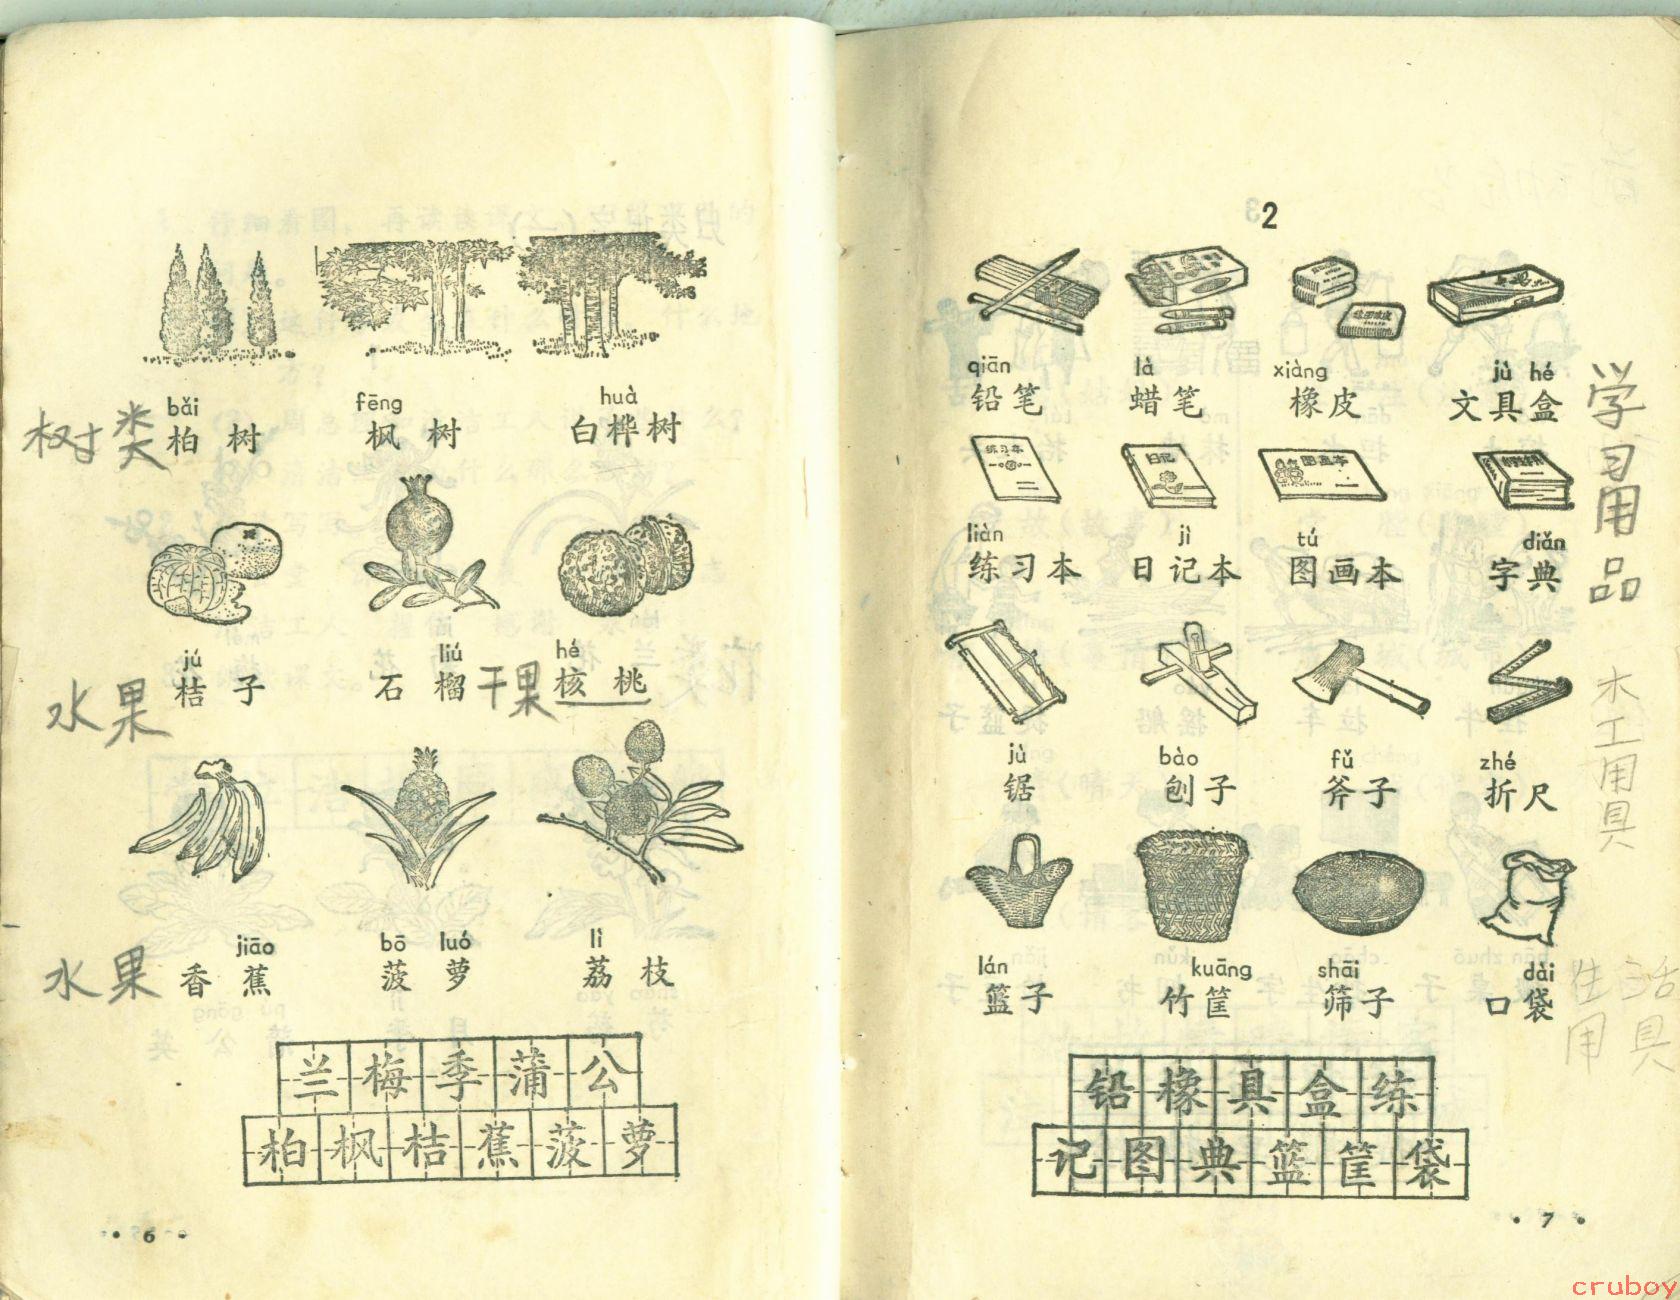 bǎi fēng huà
树类 柏树 枫树 白桦树
jú liú hé
水果 桔子 石榴 干果 核桃
jiāo bō luó lì
水果 香蕉 菠萝 荔枝
兰梅季蒲公
柏枫桔蕉菠萝
·6·
2
qiān là xiàng jù hé
铅笔 蜡笔 橡皮 文具盒
练习本 日记 图画本
liàn jì tú diǎn
练习本 日记本 图画本 字典
学习用品
jù bào fǔ zhé
锯 刨子 斧子 折尺
木工用具
lán kuāng shāi dài
篮子 竹筐 筛子 口袋
生活用具
铅橡具盒练
记图典篮筐袋
·7·
cruboy